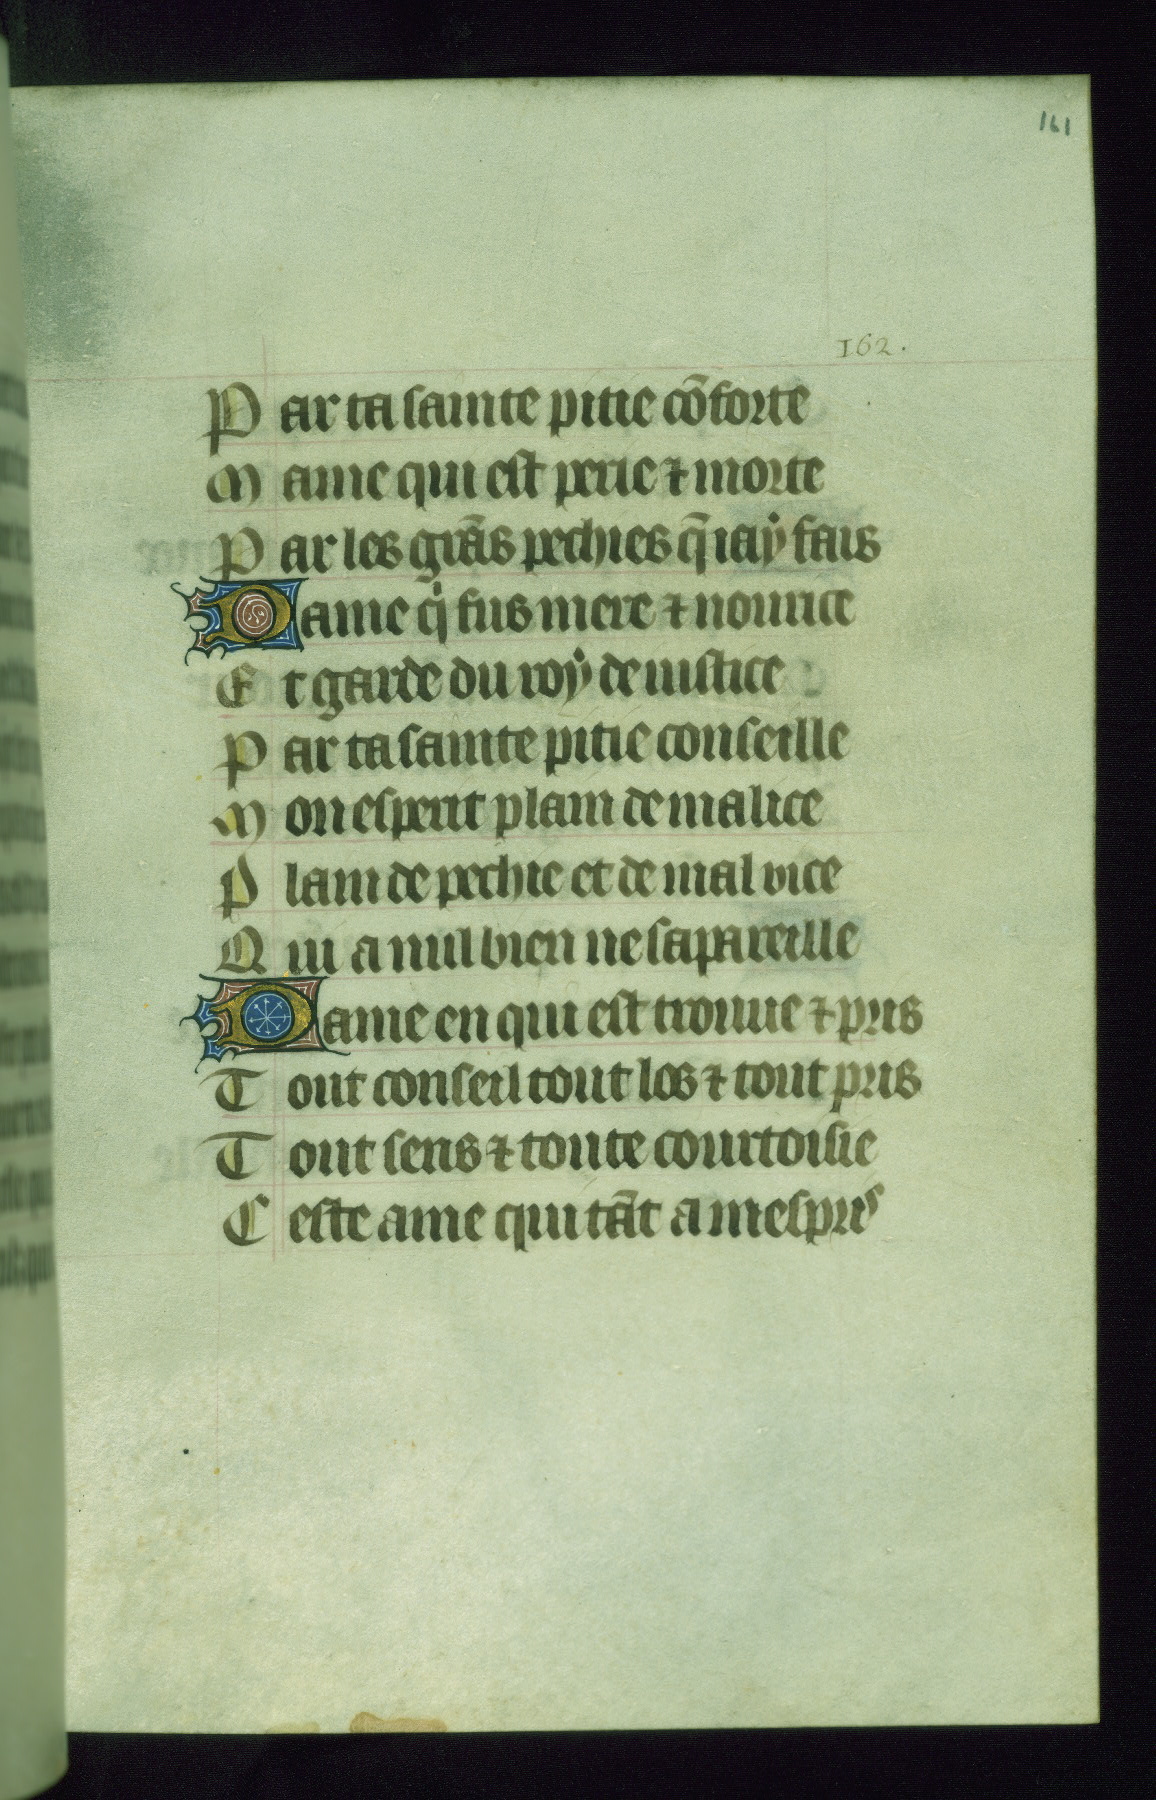 161
162.
Par ta sainte pitie cōforte
Mame qui est perie ⁊ morte
Par les grās pechies q̄ iaẏ fais
Dame qͥ fus mere ⁊ nourice
Et garde du roẏ de iustice
Par ta sainte pitie conseille
Mon esperit plain de malice
Plain de pechie et de mal vice
Qui a nul bien ne sapareille
Dame en qui est trouue ⁊ pris
Tout conseil tout los ⁊ tout pris
Tout sens ⁊ toute courtoisie
Ceste ame qui tāt a mespris